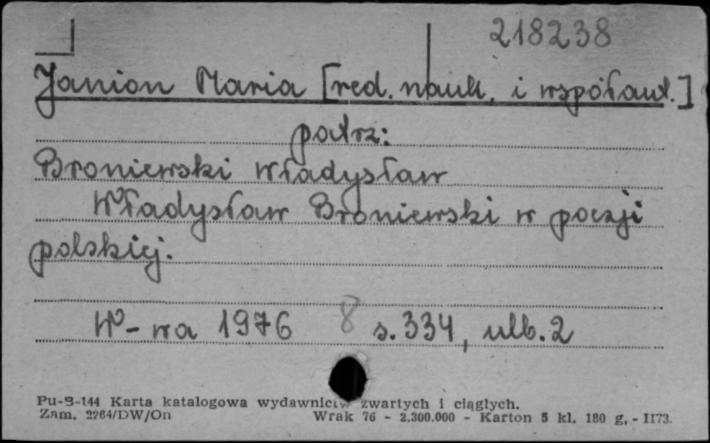 218238
Janion Maria [red. nauk. i współaut.]
patrz:
Broniewski Władysław
Władysław Broniewski w poezji
polskiej.
W-wa 1976 8 s. 334, ulb. 2
Pu-B-144 Karta katalogowa wydawnictw zwartych i ciągłych.
Zam. 2264/DW/On Wrak 76 - 2.300.000 - Karton 5 kl. 180 g. - II73.